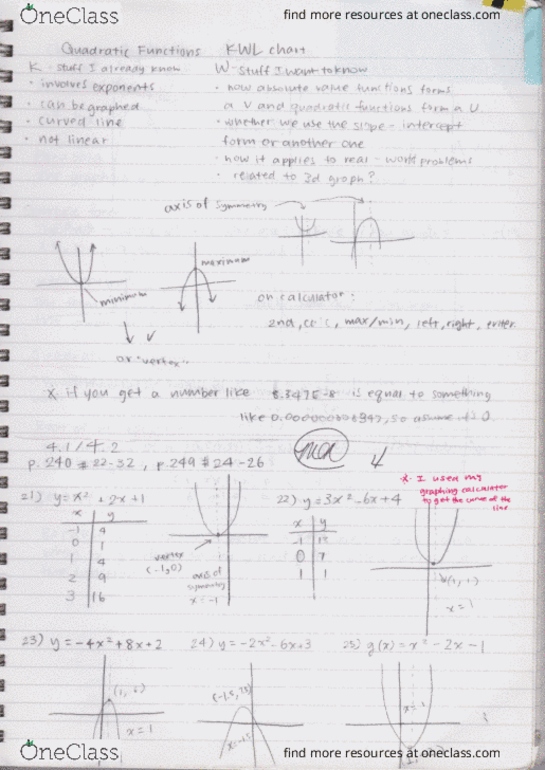 OneClass
find more resources at oneclass.com
Quadratic Functions KWL chart
K - stuff I already know
W - stuff I want to know
• involves exponents
• can be graphed
• curved line
• not linear
• how absolute value functions form
a V and quadratic functions form a U
• whether we use the slope - intercept
form or another one
• how it applies to real - world problems
• related to 3d graph?
axis of symmetry
minimum
maximum
or "vertex"
on calculator:
2nd, calc, max/min, left, right, enter
if you get a number like 8.347E-8 is equal to something
like so assume it's 0
4.1/4.2
p. 240 # 22-32, p. 249 # 24-26
I used my
graphing calculator
to get the curve of the
line
21) y = x² + 2x + 1
x y
-1 4
0 1
1 4
2 9
3 16
vertex
(-1,0)
axis of
symmetry
x = -1
22) y = 3x² - 6x + 4
x y
-1 13
0 7
1 1
(1, 1)
x = 1
23) y = -4x² + 8x + 2
x = 1
24) y = -2x² - 6x + 3
25) g(x) = x² - 2x - 1
OneClass
find more resources at oneclass.com